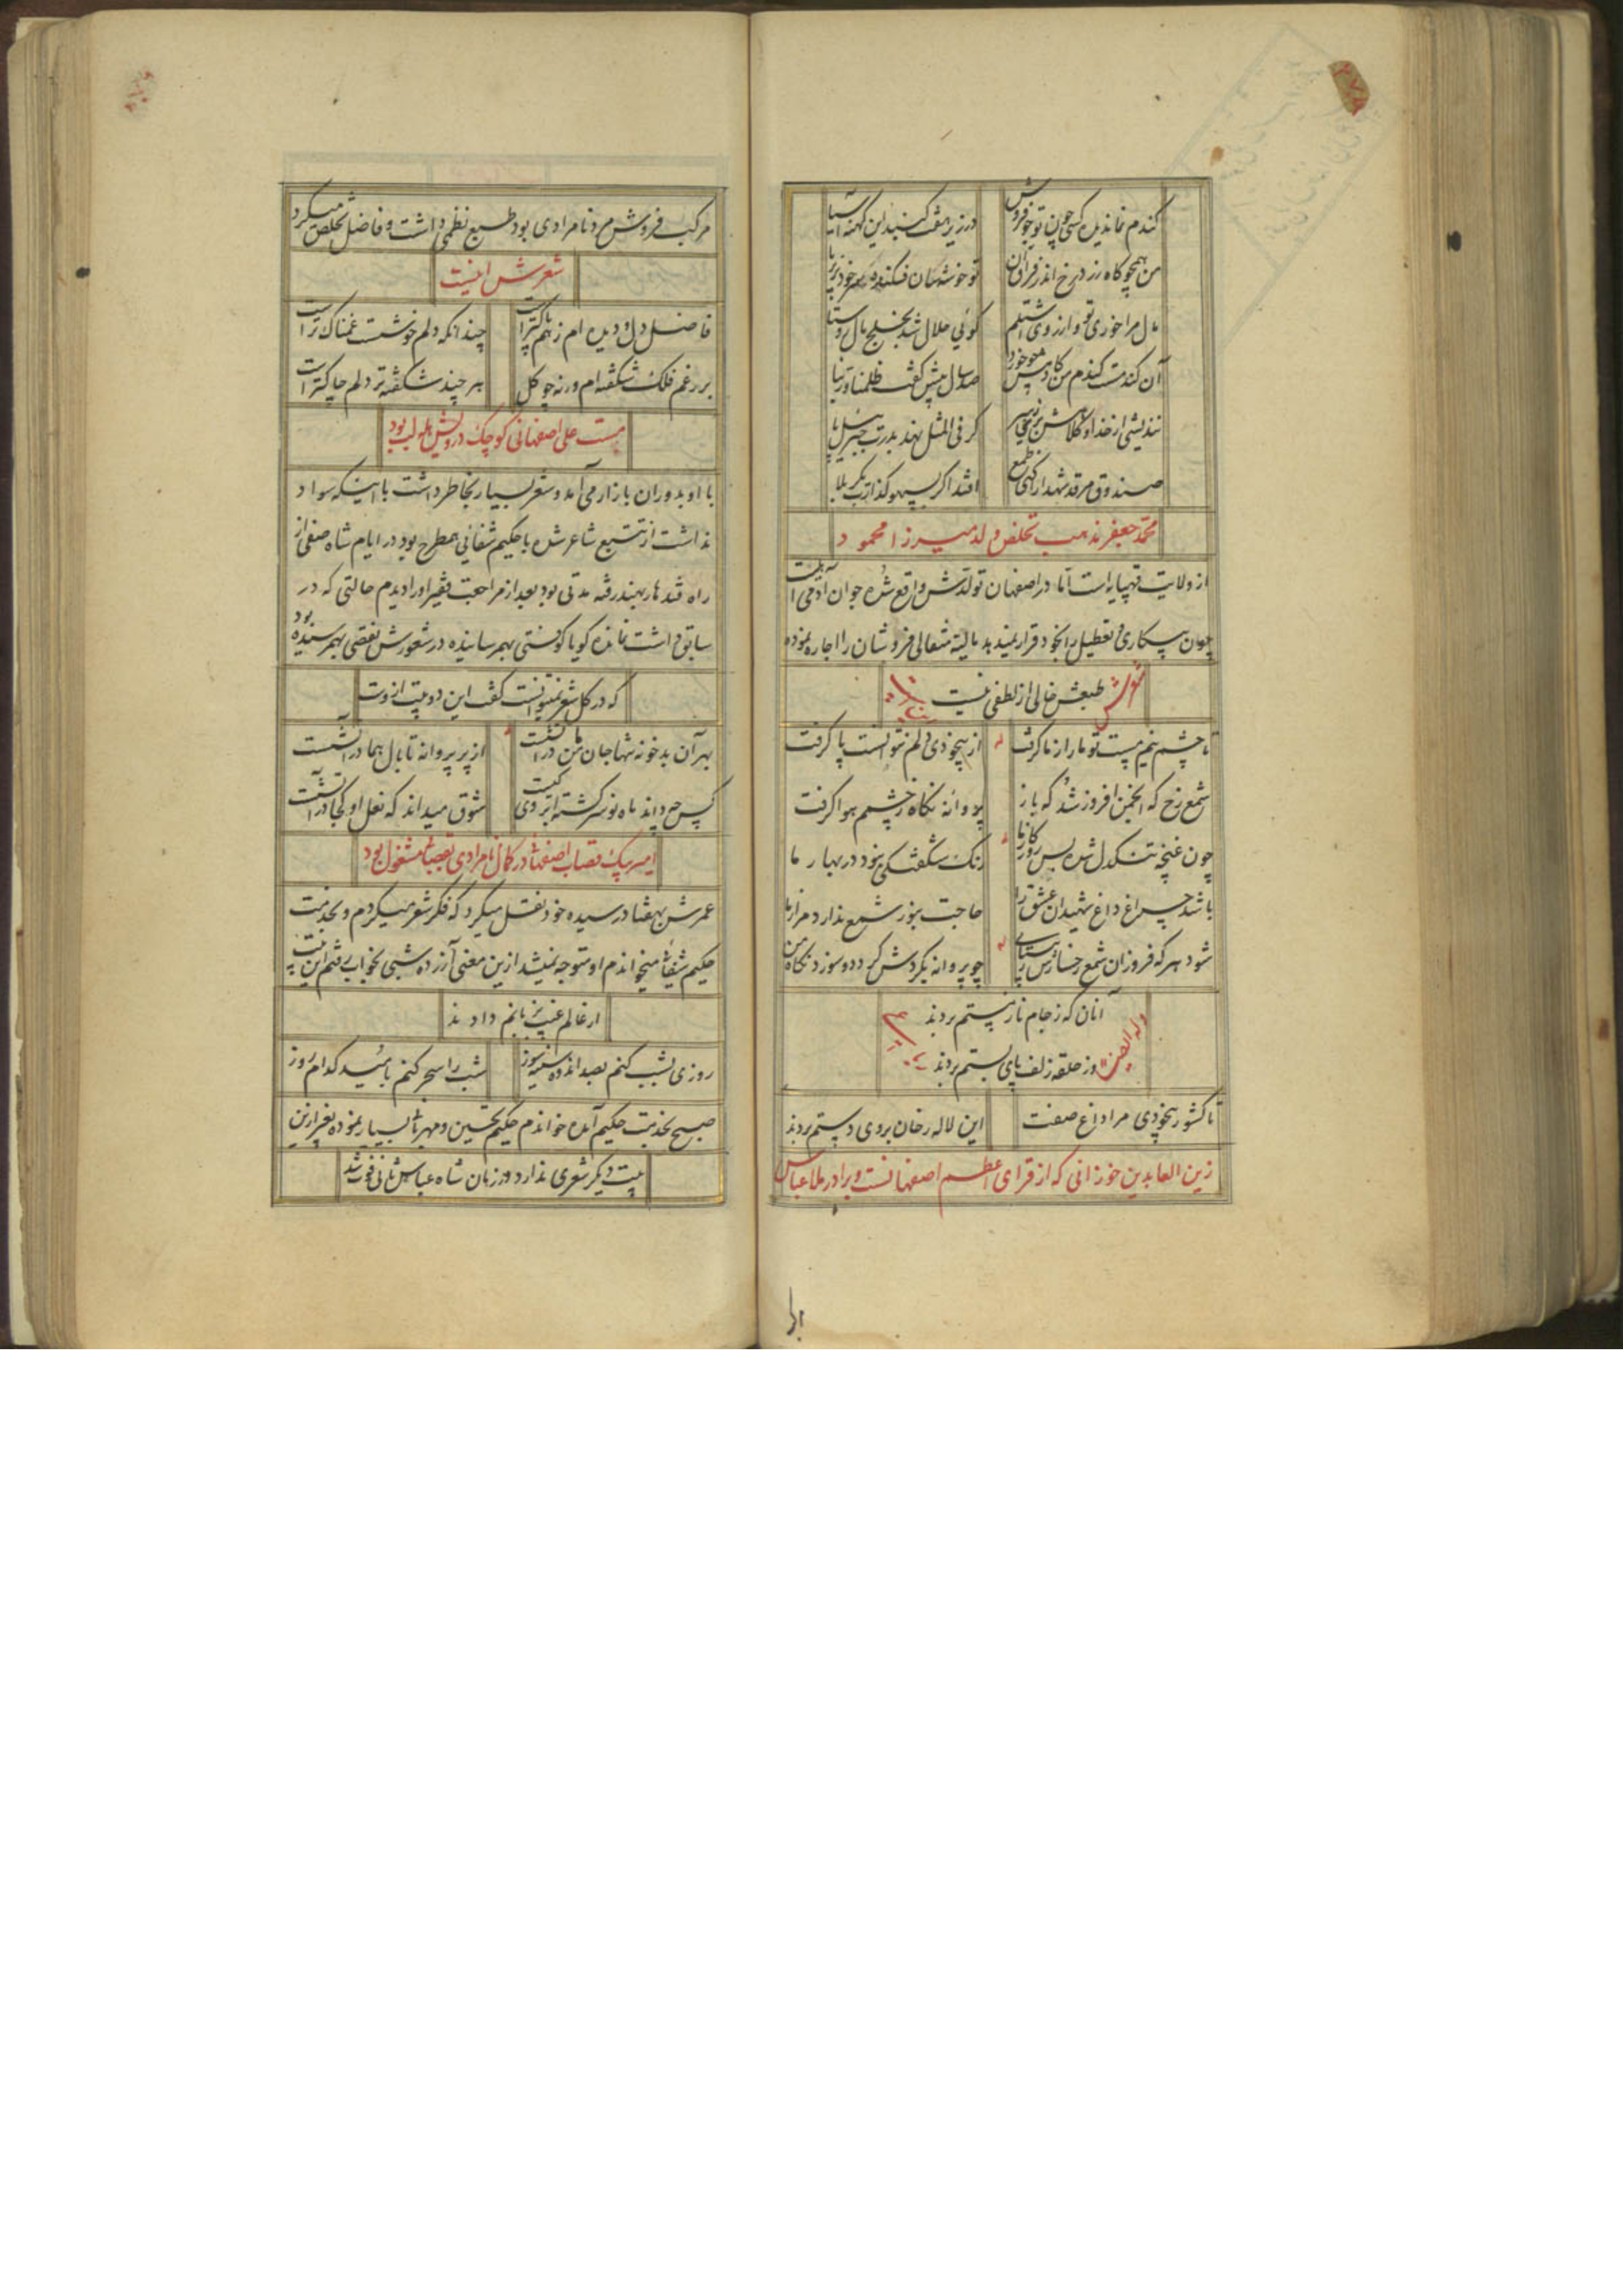 گندم نمانده کسی چون تو جو فروش
در زیر هفت گنبد این کهنه آسیا
من همچو کاه زرد رخ اندر فراق آن
تو خوشه‌سان فکنده سر خود بزیر پا
مال مرا خوری تو و از روی اشتلم
گوئی حلال شد بخلیج مال روستا
آن گندمست گندم من کادمش چو خورد
صد سال پیش گفت ظلمنا و ربنا
نندیشی از خدا و کلاهش ز سر
گر فی المثل نهند بدرت جبرئیل پا
صندوق مرقد شهدا از کهی طمع
افتد اگر بسهو گذارت بکربلا
محمد جعفر مذهب تخلص ولد میرزا محمود
از ولایت قهپایه است اما در اصفهان تولدش واقع شده جوان آدمی است
چون بیکاری و تعطیل را بخود قرار نمیدهد بالیته مثقالی فروشان را اجاره نموده
طبعش خالی از لطفی نیست شعرش
تا چشم نیم مست تو ما را ز ما گرفت
از بیخودی دلم نتوانست پا گرفت
شمع رخ که انجمن افروز شد که باز
پروانه نگاه ز چشمم هوا گرفت
چون غنچه تنگدل شده بس روزگار ما
رنگ شگفتگی نبود در بهار ما
باشد چراغ داغ شهیدان عشق را
حاجت بنور شمع ندارد مزار ما
شود هر که فروزان شمع رخسارش ز
چو پروانه بگردش گردد و سوزد نگاه من
آنان که ز جام ناز مستم بردند
وله ایضا
وز حلقه زلف پای بستم بردند
تا کشور بیخودی مرا داغ صفت
این لاله رخان بروی دستم بردند
زین العابدین خوزانی که از قرای اعظم اصفهانست و برادر ملا عباس
مرکب فروش مرد نامرادی بود طبع نظمی داشت و فاضل تخلص میکرد
شعرش اینست
فاضل دل و دیده ام ز هم پاکتر است
چندانکه دلم خوشست غمناک تر است
بر رغم فلک شکفته ام ورنه چو گل
هر چند شکفته تر دلم چاکتر است
مست علی اصفهانی کوچک درویش بود
با او بدوران بازار می آمد و شعر بسیار بخاطر داشت با اینکه سواد
نداشت از تتبع شاعر شده با حکیم شفائی همطرح بود در ایام شاه صفی از
راه قندهار بهند رفته مدتی بود بعد از مراجعت فقیر او را دیدم حالتی که در
سابق داشت نمانده گویا کوفتی بهم رسانیده در شعورش نقصی بهم رسیده بود
که در کل شعر نمیتوانست گفت این دو بیت ازوست
بهر آن بدخو نه تنها جان من در آتشست
از پر پروانه تا بال هما در آتشست
کس چه داند ماه نو سرگشته ابروی کیست
شوق میداند که نعل او کجا در آتشست
امیر بیک قصاب اصفهانی در کمال نامرادی بقصابی مشغول بود
عمرش بهشتاد رسیده خود نقل میکرد که فکر شعر میکردم و بخدمت
حکیم شفائی میخواندم او متوجه نمیشد ازین معنی آزرده شبی بخواب رفتم این بیت
از عالم غیب بر زبانم دادند
روزی بشب کنم بصد اندوه سینه سوز
شب را سحر کنم بامید کدام روز
صبح بخدمت حکیم آمده خواندم حکیم تحسین و مهربانی بسیار نموده بغیر ازین
بیت دیگر شعری ندارد در زمان شاه عباس ثانی فوت شد